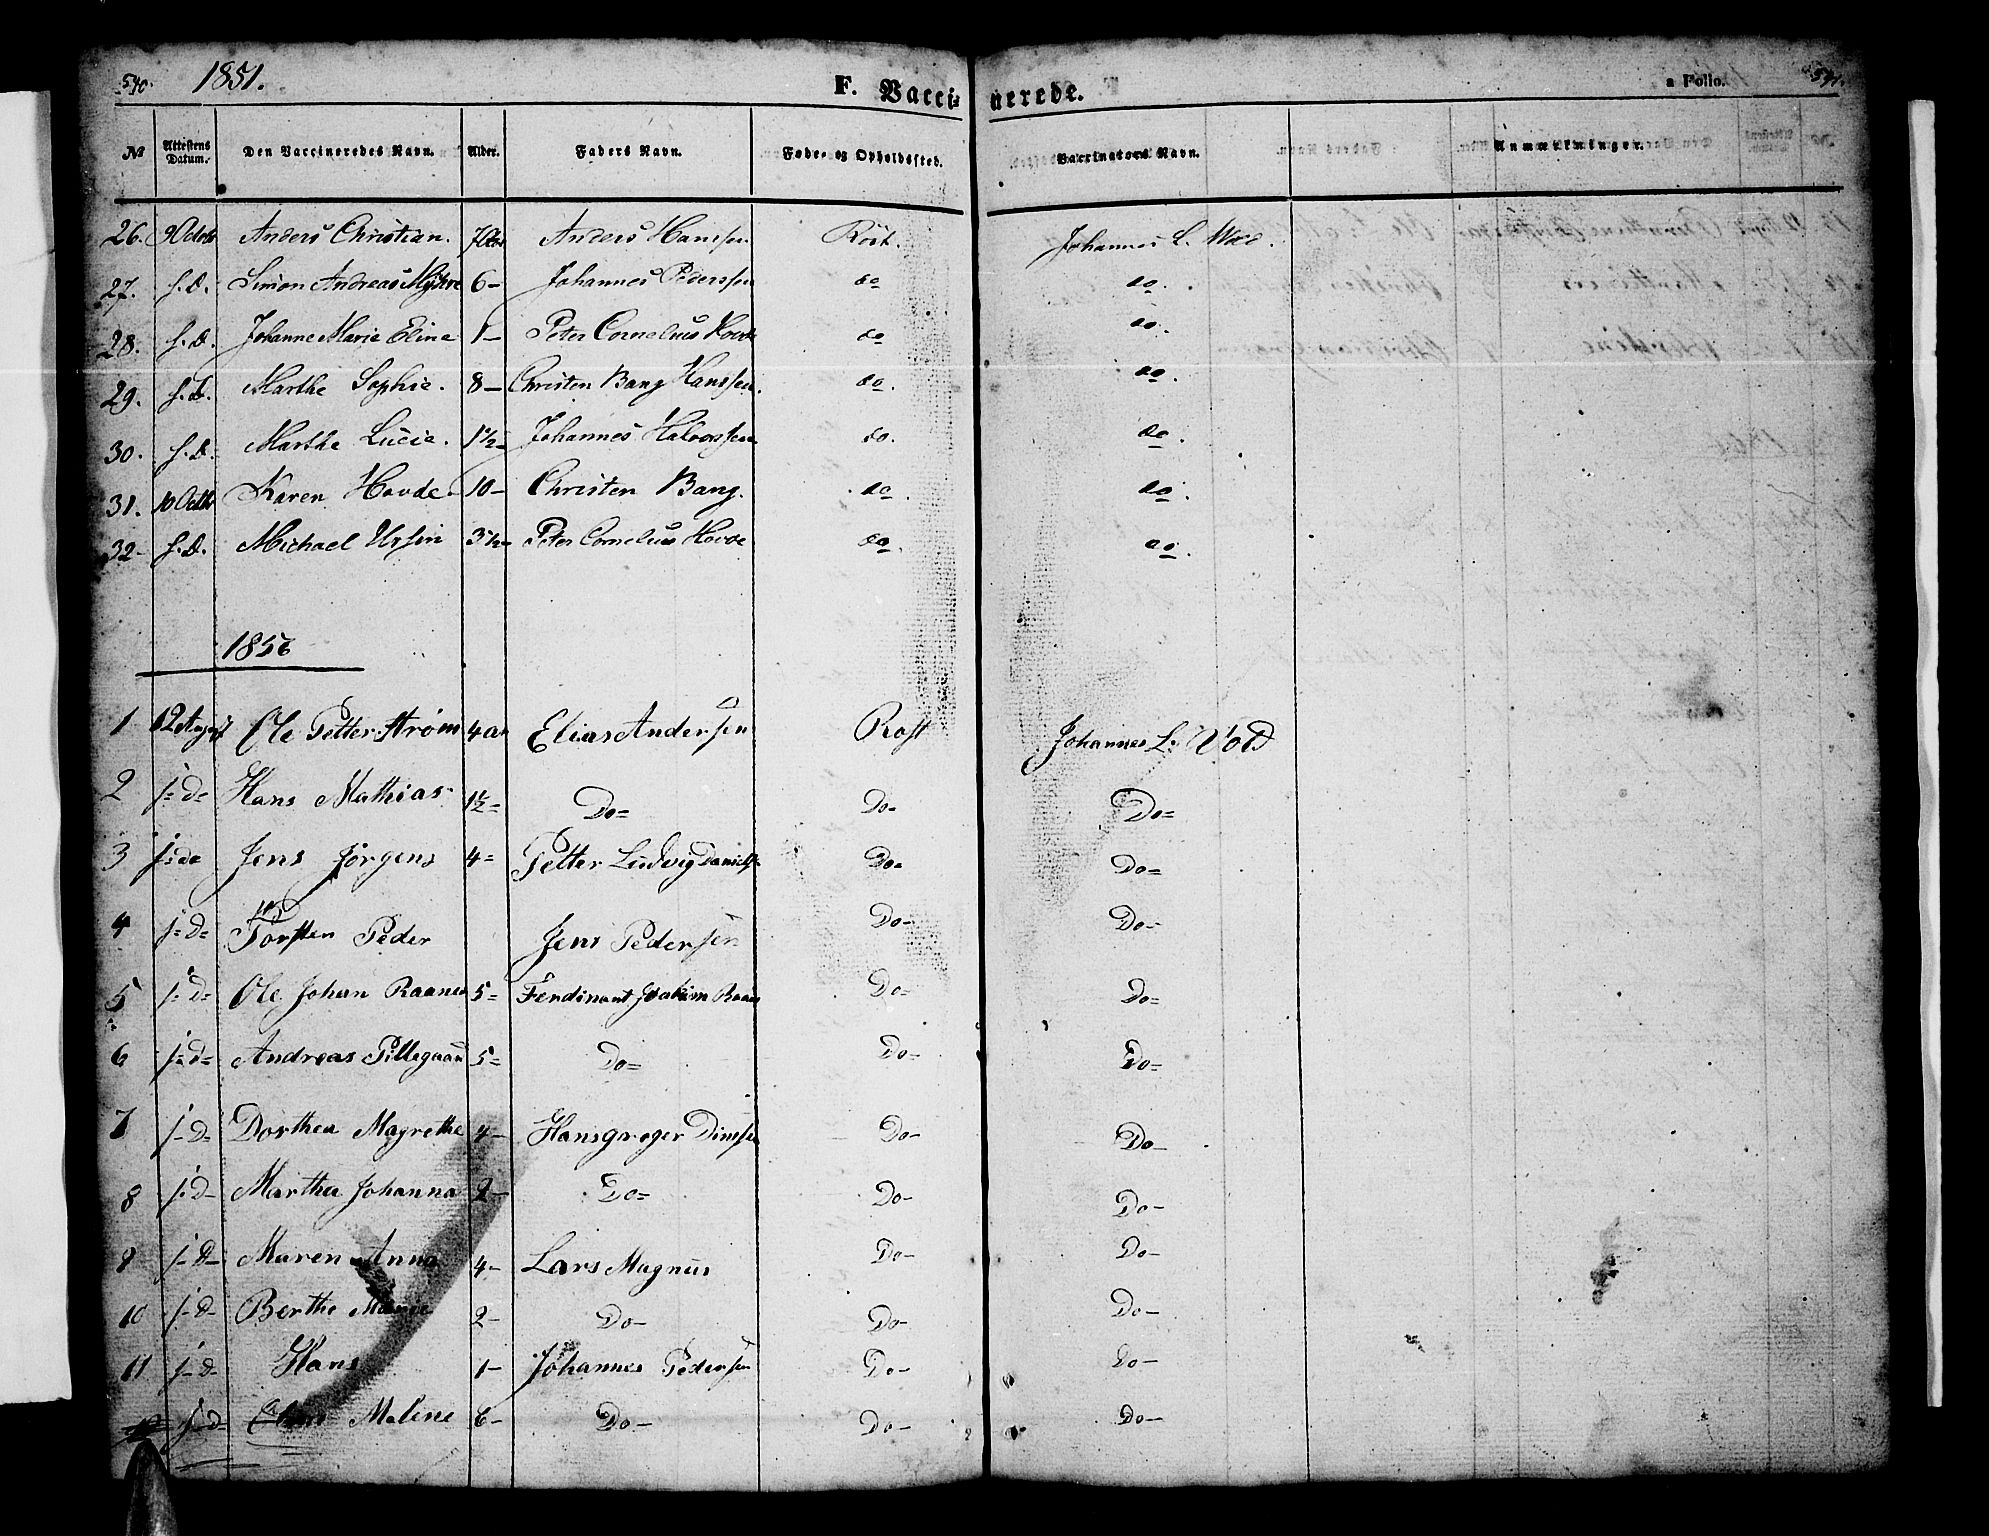 540. 1851. F. Vacci= nerede. a Folio. 541.
No Attestens Datum. Den Vaccineredes Navn. Alder. Faders Navn. Føde- og Opholdssted. Vaccinateurs Navn. Anmærkninger.
26. 9 Octob Anders Christian. 7 Aar Anders Hanssen Röst. Johannes L. Wold.
27. s. D. Simon Andreas 6 – Johannes Pederssen do do.
28. s. D. Johanne Marie Eline 1 – Peter Cornelius Hovde do do.
29. s. D. Marthe Sophie. 8 – Christen Bang Hanssen. do. do.
30. s. D. Marthe Lucie. 1½ – Johannes Halvorssen do. do.
31. 10 Octbr Karen Hovde. 10 – Christen Bang. do. do.
32 – s. D. Michael Ursin 3½ – Peter Cornelius Hovde do. do.
1856
1 12 August Ole Petter Strøm 4 aar Elias Andersen Røst Johannes L: Vold
2 s= D= Hans Mathias 1½= Do= Do= Do=
3 s= do Jens Jørgens 4= Petter Ludvig Daniels Do= Do=
4 s= D= Torsten Peder Jens Pedersen Do= Do=
5 s= D= Ole Johan Raanes 5= Ferdinant Joakim Raanes Do= Do=
6 s= D= Andreas Pillegaan 5= Do= Do= Do=
7 s– D= Dorthea Magrethe 4– Hans Do– Do–
8 s– D– Martha Johanna 2– Do= Do– Do–
9 s– D– Maren Anna 4– Lars Magnus Do– Do–
10 s– D– Berthe 2– Do– Do– Do–
11 s– D– Hans 1– Johannes Pedersen Do– Do–
12 s– D– Malene 6– Do– Do– Do–